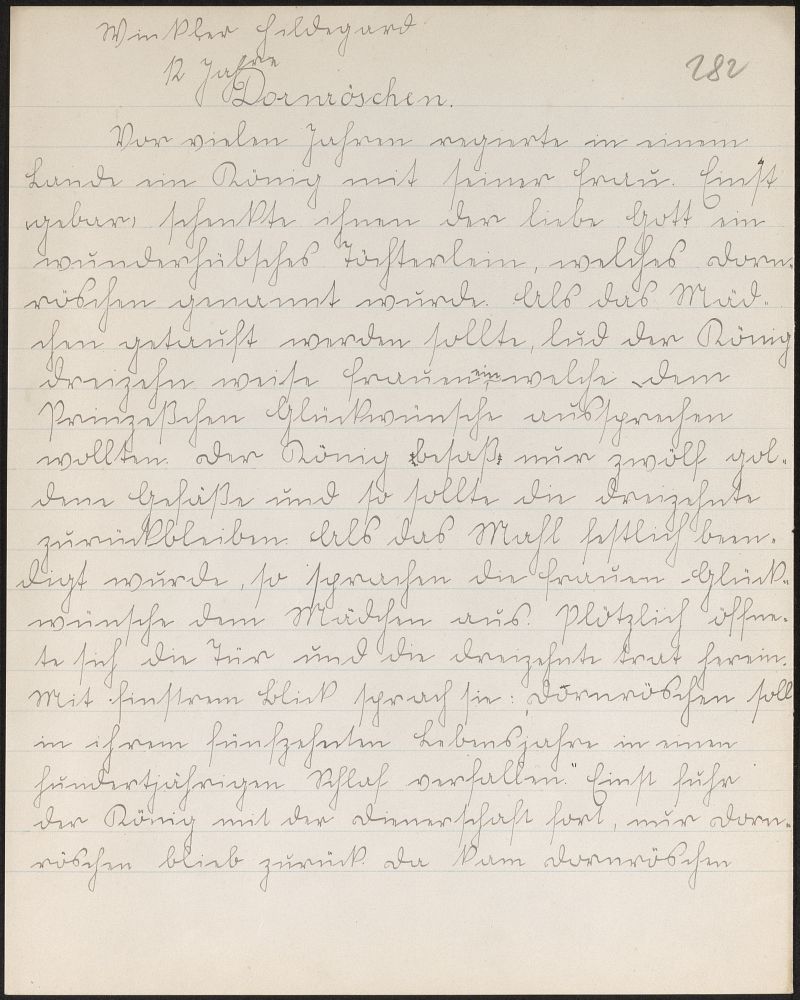 Winkler Hildegard
12 Jahre
282
Dornröschen.
Vor vielen Jahren regierte in einem
Lande ein König mit seiner Frau. Einst
"gebar" schenkte ihnen der liebe Gott ein
wunderhübsches Töchterlein, welches Dorn-
röschen genannt wurde. Als das Mäd-
chen getauft werden sollte, lud der König
dreizehn weise Frauen ein welche dem
Prinzeßchen Glückwünsche aussprechen
wollten. Der König besaß nur zwölf gol-
dene Gefäße und so sollte die dreizehnte
zurückbleiben. Als das Mahl festlich been-
digt wurde, so sprachen die Frauen Glück-
wünsche dem Mädchen aus. Plötzlich öffne-
te sich die Tür und die dreizehnte trat herein.
Mit finstrem Blick sprach sie: „Dornröschen soll
in ihrem fünfzehnten Lebensjahre in einen
hundertjährigen Schlaf verfallen." Einst fuhr
der König mit der Dienerschaft fort, nur Dorn-
röschen blieb zurück. Da kam Dornröschen